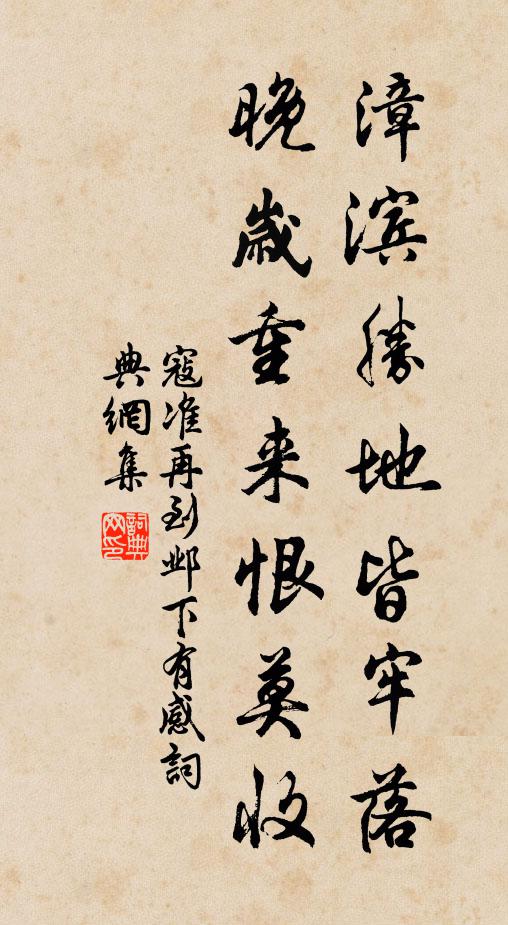 漳滨勝地皆牢落
晚歲重来恨莫收
寇准再到邺下有感詞
典網集
詞典网印